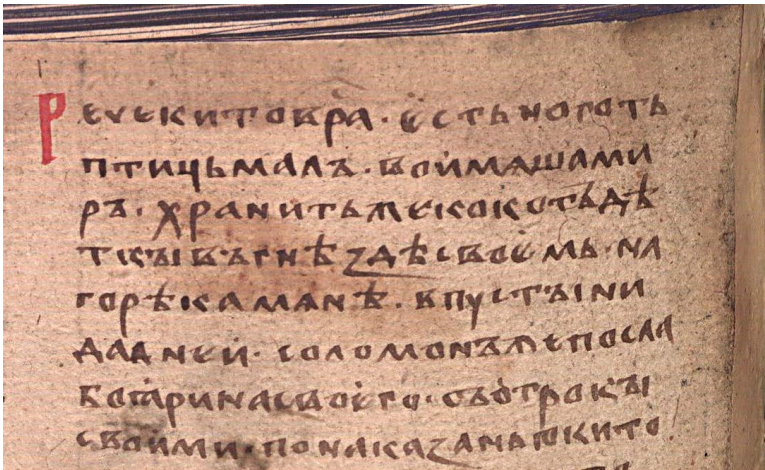 Рече китовра · есть ноготь
птиць малъ · во имѧ шами
ръ · хранить же и кокотъ дѣ
ткꙑ въ гнѣздѣ своемь · на
горѣ камѧнѣ · в пустꙑни
далнеи · соломонъ же посла
боꙗрина своего · съ отрокꙑ
своими · по наказанью кито